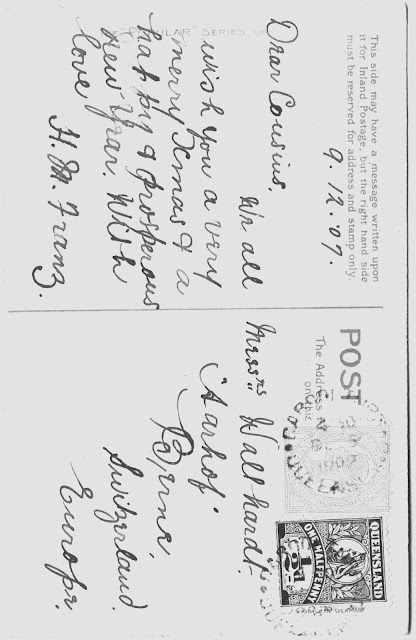 This side may have a message written upon
it for Inland Postage, but the right hand side
must be reserved for address and stamp only.
9.12.07.
Dear Cousins,
We all
wish you a very
merry Xmas & a
happy & prosperous
New Year. With
love
H. M. Franz.
"POPULAR" SERIES
POST
The Address
Messrs Walthardt
Aarhof
Berne,
Switzerland
Europe.
QUEENSLAND
ONE HALFPENNY